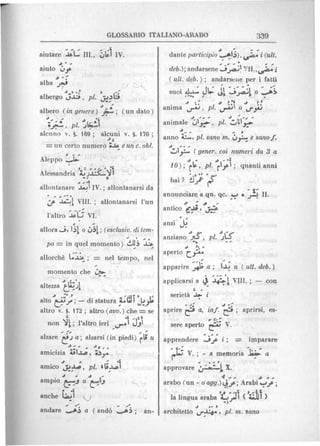 GLOSSARIO ITALIANO-ARABO 339
aiutare ساعد III., أعان IV.
aiuto عون
alba فجر
albergo فندق, pl. فنادق
albero (in genere) شجر; (un dato) شجرة, pl. أشجار
alcuno v. §. 169; alcuni v. §. 170;
= un certo numero بعض e un c. obl.
Aleppo حلب
Alessandria الإسكندرية
allontanare أبعد IV.; allontanarsi da
l'altro تباعد VI.
allora إذًا o إذن; (esclusiv. di tem-
po = in quel momento)
allorchè لما; = nel tempo, nel
momento che حين
altezza ارتفاع
alto مرتفع; – di statura طويل القامة
altro v. §. 172; altro (avv.) che = se
non إلا; l'altro ieri أول أمس
alzare رفع a; alzarsi (in piedi) قام u
amicizia
amico صديق, pl. أصدقاء
ampio واسع o وسيع
anche أيضا
andare ذهب a (andò ذهب; an-
dante participio ذاهب), مشى i (ult.
deb.); andarsene انصرف VII., مضى i
(ult. deb.); andarsene per i fatti
suoi
anima نفس, pl. أنفس o نفوس
animale حيوان, pl. حيوانات
anno سنة, pl. sano m. سنون e sano f.
سنوات (gener. coi numeri da 3 a
10); عام, pl. أعوام; quanti anni
hai?
annunciare a qn. qc. بشر ب II.
antico قديم
anzi بل
anziano كبير, pl. كبار
aperto مفتوح
apparire ظهر a; بدا u (ult. deb.)
applicarsi a اشتغل ب VIII.; – con
serietà جد i
aprire فتح a, inf. فتح; aprirsi, es-
sere aperto V.
apprendere عرف i; = imparare
تعلم V.; – a memoria حفظ a
approvare استحسن X.
arabo (un – o agg.) عربي; Arabi عرب;
la lingua araba العربية (اللغة)
architetto مهندس, pl. m. sano